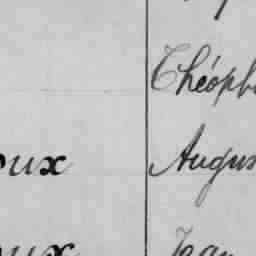 Théoph
oux Augus
oux Jean